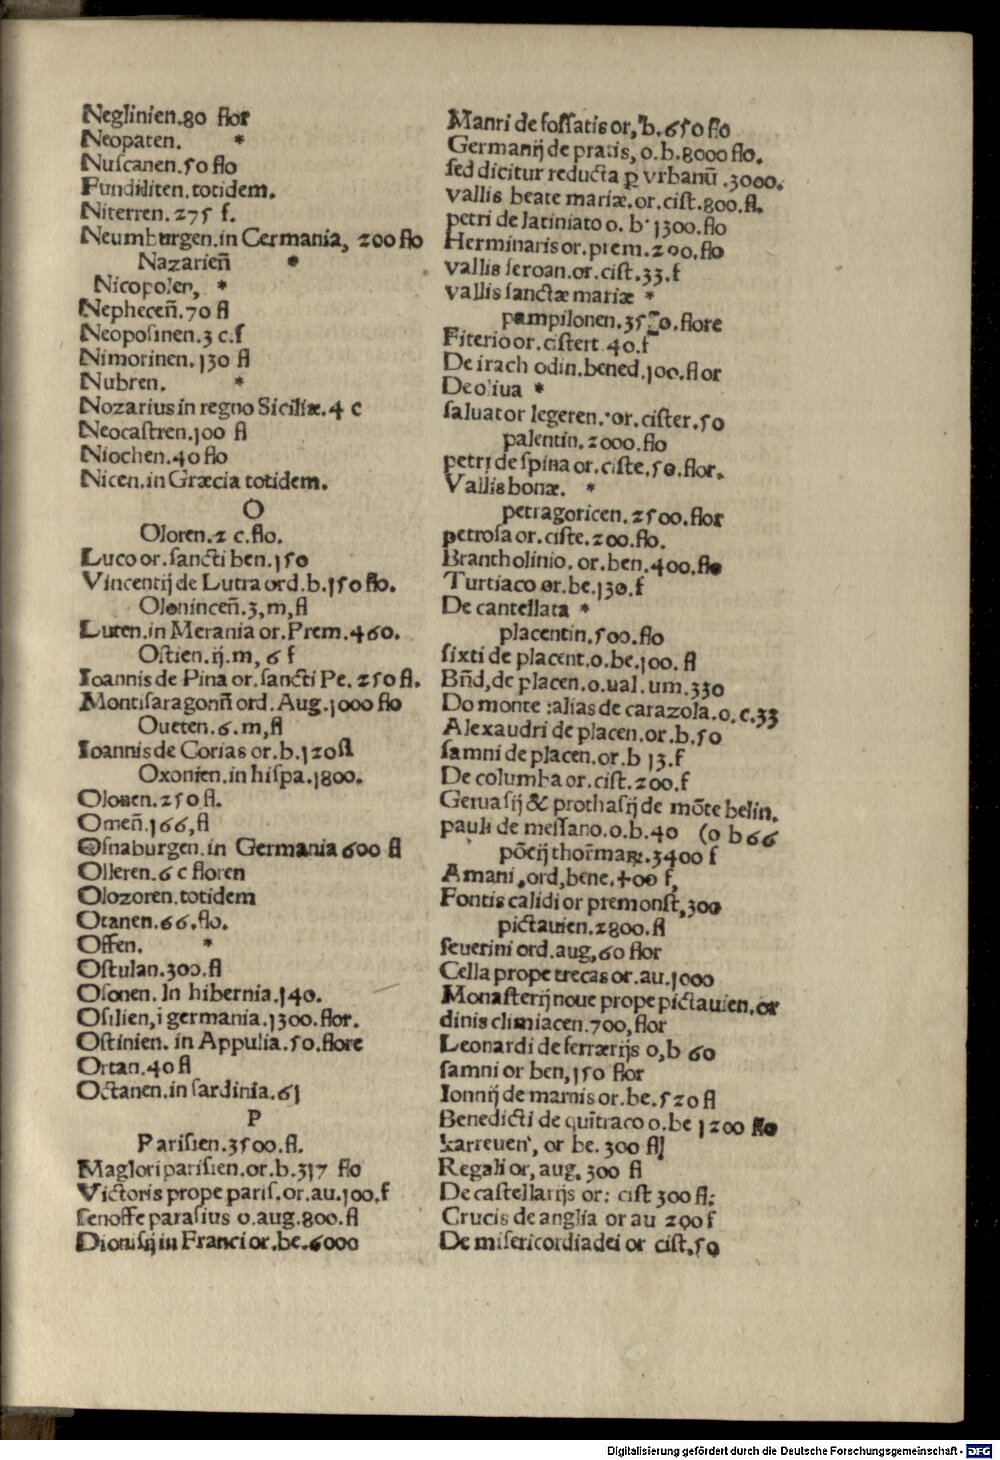 Neglinien.80 flor
Neopaten. *
Nuſcanen.50 flo
Fundiliten.totidem.
Niterren.275 f.
Neumburgen.in Germania, 200 flo
Nazarien̄ *
Nicopolen, *
Nephecen̄.70 fl
Neopoſinen.3 c.f
Nimorinen.130 fl
Nubren. *
Nozarius in regno Siciliæ.4 c
Neocaſtren.100 fl
Niochen.40 flo
Nicen.in Græcia totidem.
O
Oloren.2 c.flo.
Luco or.ſancti ben.150
Vincentij de Lutra ord.b.150 flo.
Olonincen̄.3,m,fl
Luten.in Merania or.Prem.460.
Oſtien.ij.m, 6 f
Ioannis de Pina or.ſancti Pe.250 fl.
Montiſaragonn̄ ord.Aug.1000 flo
Oueten.6.m,fl
Ioannis de Corias or.b.120fl
Oxonien.in hiſpa.1800.
Olonen.250 fl.
Omen̄.166,fl
Oſnaburgen.in Germania 600 fl
Olleren.6 c floren
Olozoren.totidem
Otanen.66.flo.
Offen. *
Oſtulan.300.fl
Oſonen. In hibernia.140.
Oſilien,ī germania.1300.flor.
Oſtinien. in Appulia.50.flore
Ortan.40 fl
Octanen.in ſardinia.61
P
Pariſien.3500.fl.
Maglori pariſien.or.b.317 flo
Victoris prope pariſ.or.au.100.f
ſenoffe paraſius o.aug.800.fl
Dioniſij in Franci or.be.6000
Manri de foſſatis or,b.650 flo
Germanij de pratis, o.b.8000 flo.
ſed dicitur reducta ꝑ vrbanū .3000.
vallis beate mariæ.or.ciſt.800.fl.
petri de latiniato o. b·1300.flo
Herminaris or.prem.200.flo
vallis ſeroan.or.ciſt.33.f
vallis ſanctæ mariæ *
pampilonen.3550.flore
Fiterio or.ciſtert 40.f
De irach odin.bened.100.flor
De oliua *
ſaluator legeren.·or.ciſter.50
palentin.2000.flo
petri de ſpina or.ciſte.50.flor.
Vallis bonæ. *
petragoricen.2500.flor
petroſa or.ciſte.200.flo.
Brantholinio. or.ben.400.flo
Turtiaco or.be.130.f
De cantellata *
placentin.500.flo
ſixti de placent.o.be.100. fl
Bn̄d,de placen.o.ual.um.330
Do monte :alias de carazola.o.c.33
Alexaudri de placen.or.b.50
ſamni de placen.or.b 13.f
De columba or.ciſt.200.f
Geruaſij & prothaſij de mōte belin.
pauli de meſſano.o.b.40 (o b 66
pōcij thor̄maꝝ.3400 f
Amani.ord,bene.400 f,
Fontis calidi or premonſt,300
pictauien.2800.fl
ſeuerini ord.aug,60 flor
Cella prope trecas or.au.1000
Monaſterij noue prope pictauien.or
dinis cluniacen.700,flor
Leonardi de ferrærijs o,b 60
ſamni or ben,150 flor
Ionnij de marnis or.be.520 fl
Benedicti de quītraco o.be 1200 flo
karreuen', or be. 300 fl
Regali or, aug. 300 fl
De caſtellarijs or: ciſt 300 fl:
Crucis de anglia or au 200 f
De miſericordia dei or ciſt.50
Digitalisierung gefördert durch die Deutsche Forschungsgemeinschaft - DFG